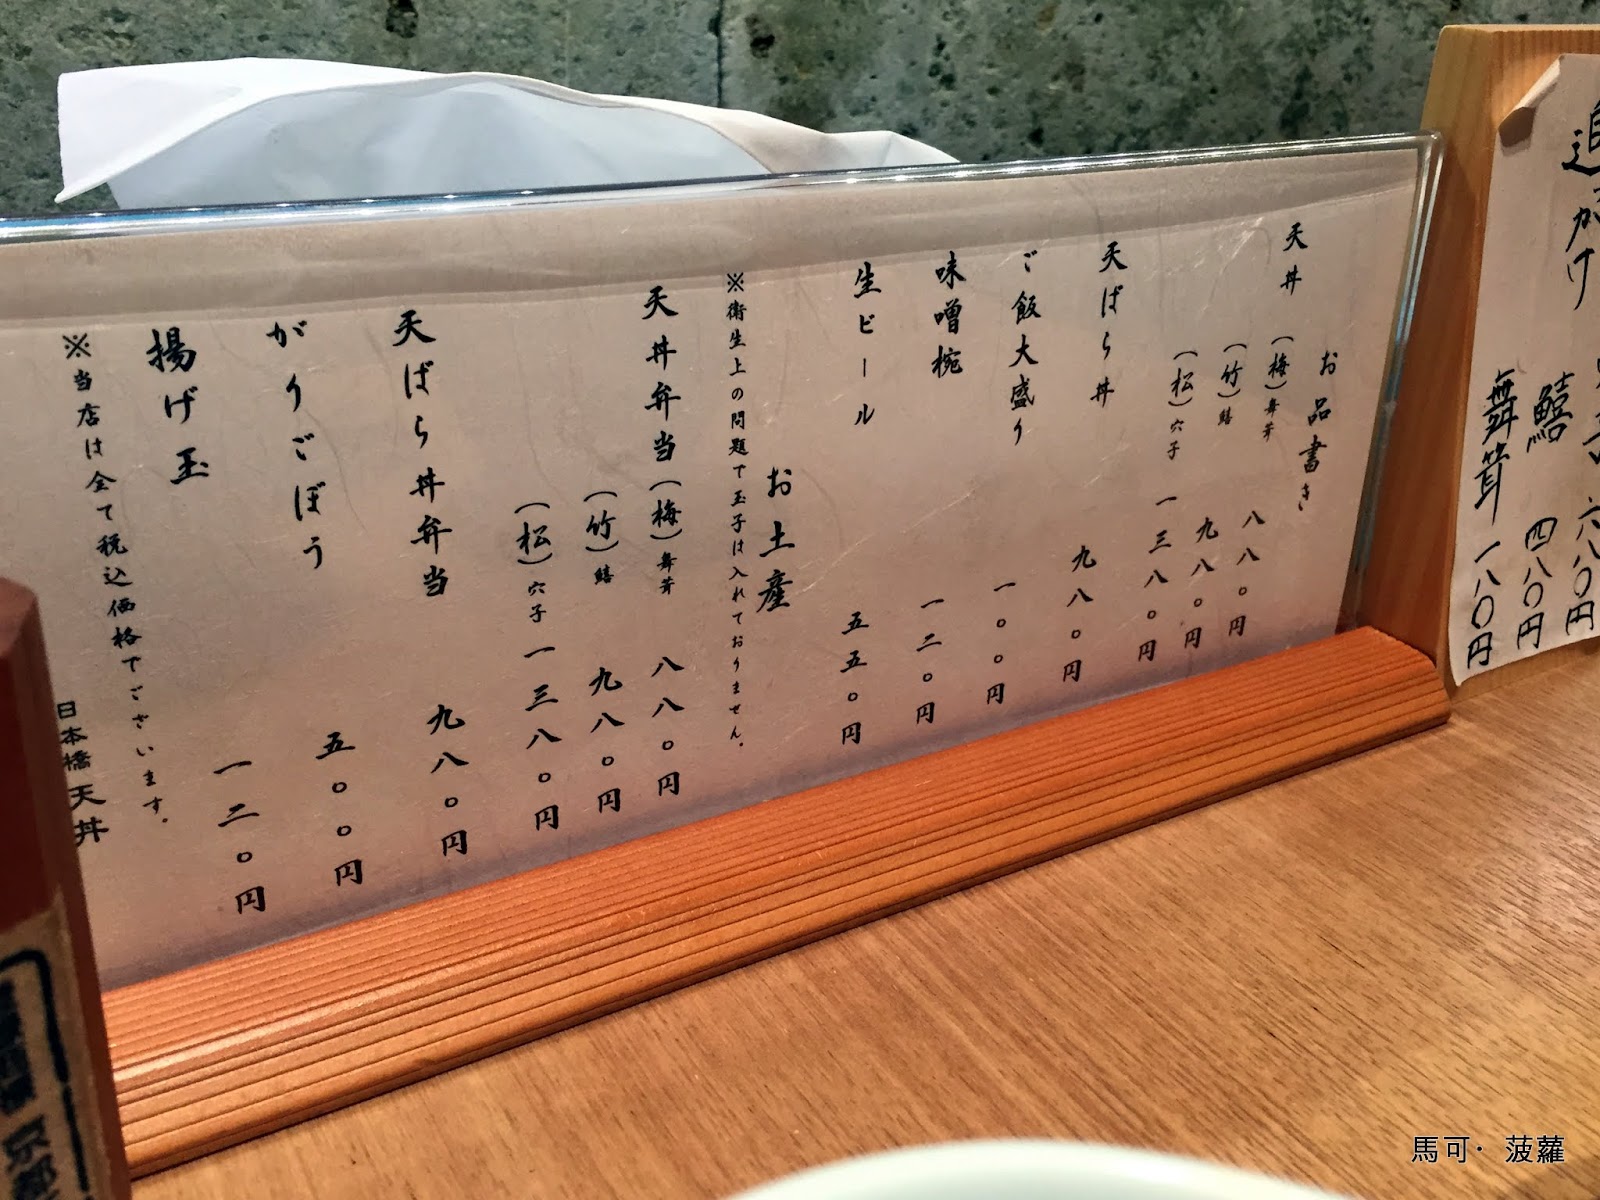 追がけ
六八〇円
鱚 四八〇円
舞茸 一八〇円
お品書き
天丼 (梅)舞茸 八八〇円
(竹)鱚 九八〇円
(松)穴子 一三八〇円
天ばら丼 九八〇円
ご飯大盛り 一〇〇円
味噌椀 一二〇円
生ビール 五五〇円
お土産
※衛生上の問題で玉子は入れておりません。
天丼弁当(梅)舞茸 八八〇円
(竹)鱚 九八〇円
(松)穴子 一三八〇円
天ばら丼弁当 九八〇円
がりごぼう 五〇〇円
揚げ玉 一二〇円
※当店は全て税込価格でございます。
日本橋 天丼
馬可·菠蘿